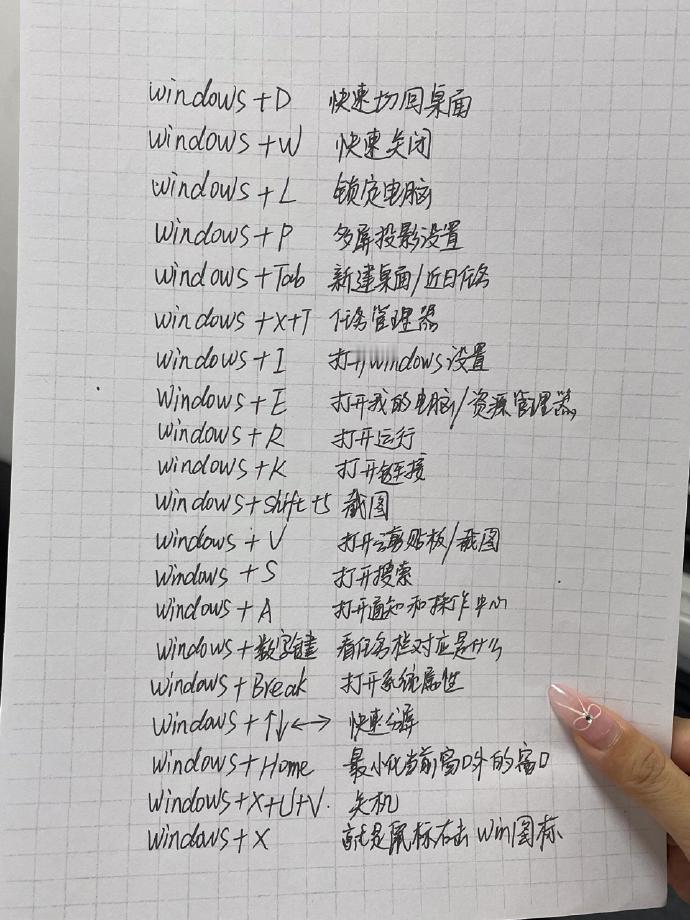 windows+D 快速切回桌面
windows+W 快速关闭
windows+L 锁定电脑
windows+P 多屏投影设置
windows+Tab 新建桌面/近日任务
windows+X+T 任务管理器
windows+I 打开windows设置
windows+E 打开我的电脑/资源管理器
windows+R 打开运行
windows+K 打开链接
windows+shift+s 截图
windows+V 打开云剪贴板/截图
windows+S 打开搜索
windows+A 打开通知和操作中心
windows+数字键 看任务栏对应是什么
windows+Break 打开系统属性
windows+↑↓←→ 快速分屏
windows+Home 最小化当前窗口外的窗口
windows+X+U+V. 关机
windows+X 就是鼠标右击win图标